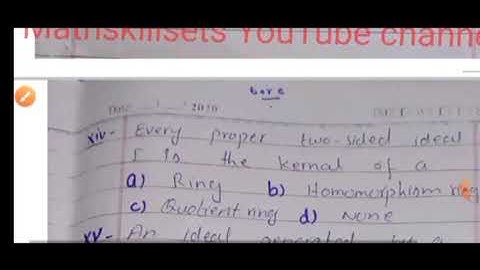 Mathskillsets YouTube channe
bore
Date 2020
xiv- Every proper two-sided ideal
I is the kernal of a
a) Ring b) Homomorphism ring
c) Quotient ring d) None
xv- An ideal generated by a